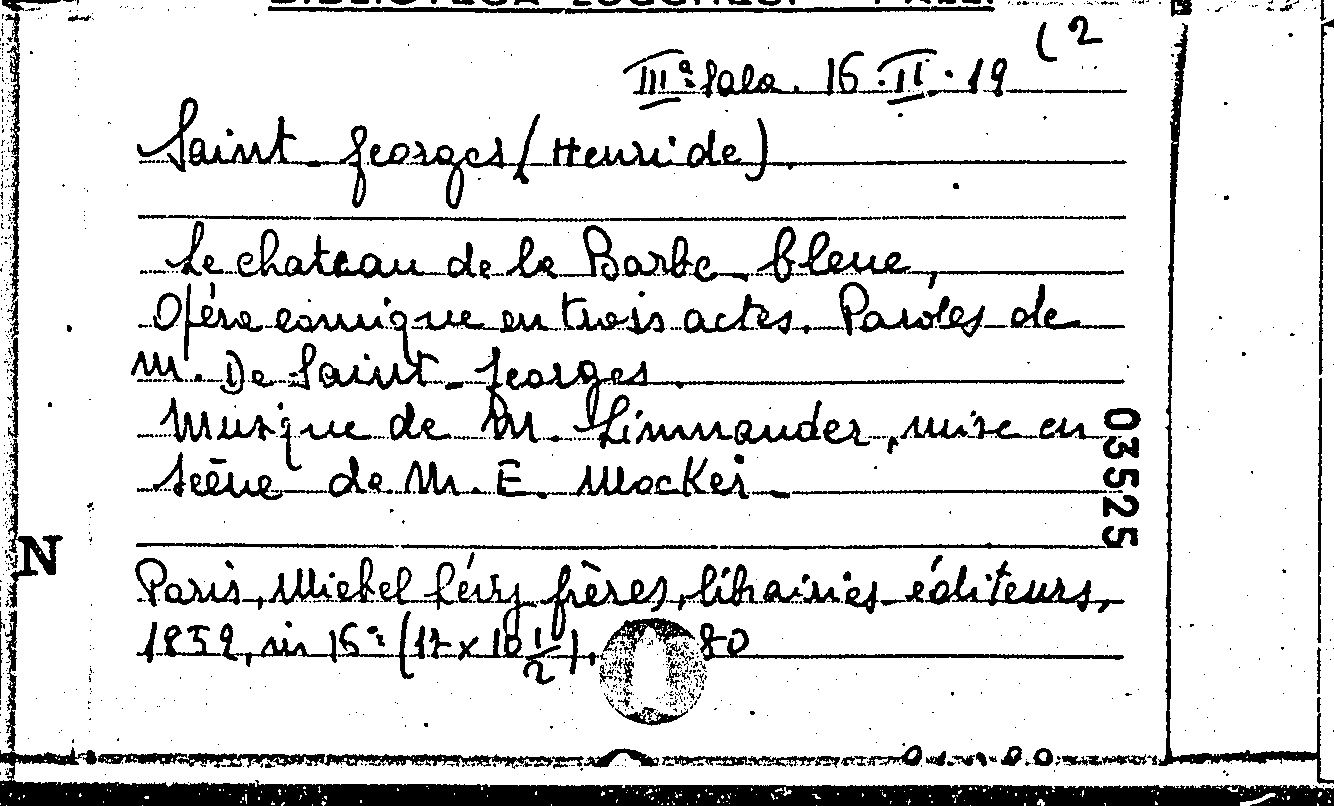 IIIª Sala. 16.II.19 (2
Saint-Georges (Henri de).
Le chateau de la Barbe-bleue,
Opéra comique en trois actes. Paroles de
M. De Saint-Georges.
Musique de M. Limnander, mise en
scène de M. E. Mocker.
03525
N
Paris, Michel Lévy frères, libraires éditeurs,
in 16º (17 x 10 1/2). 80